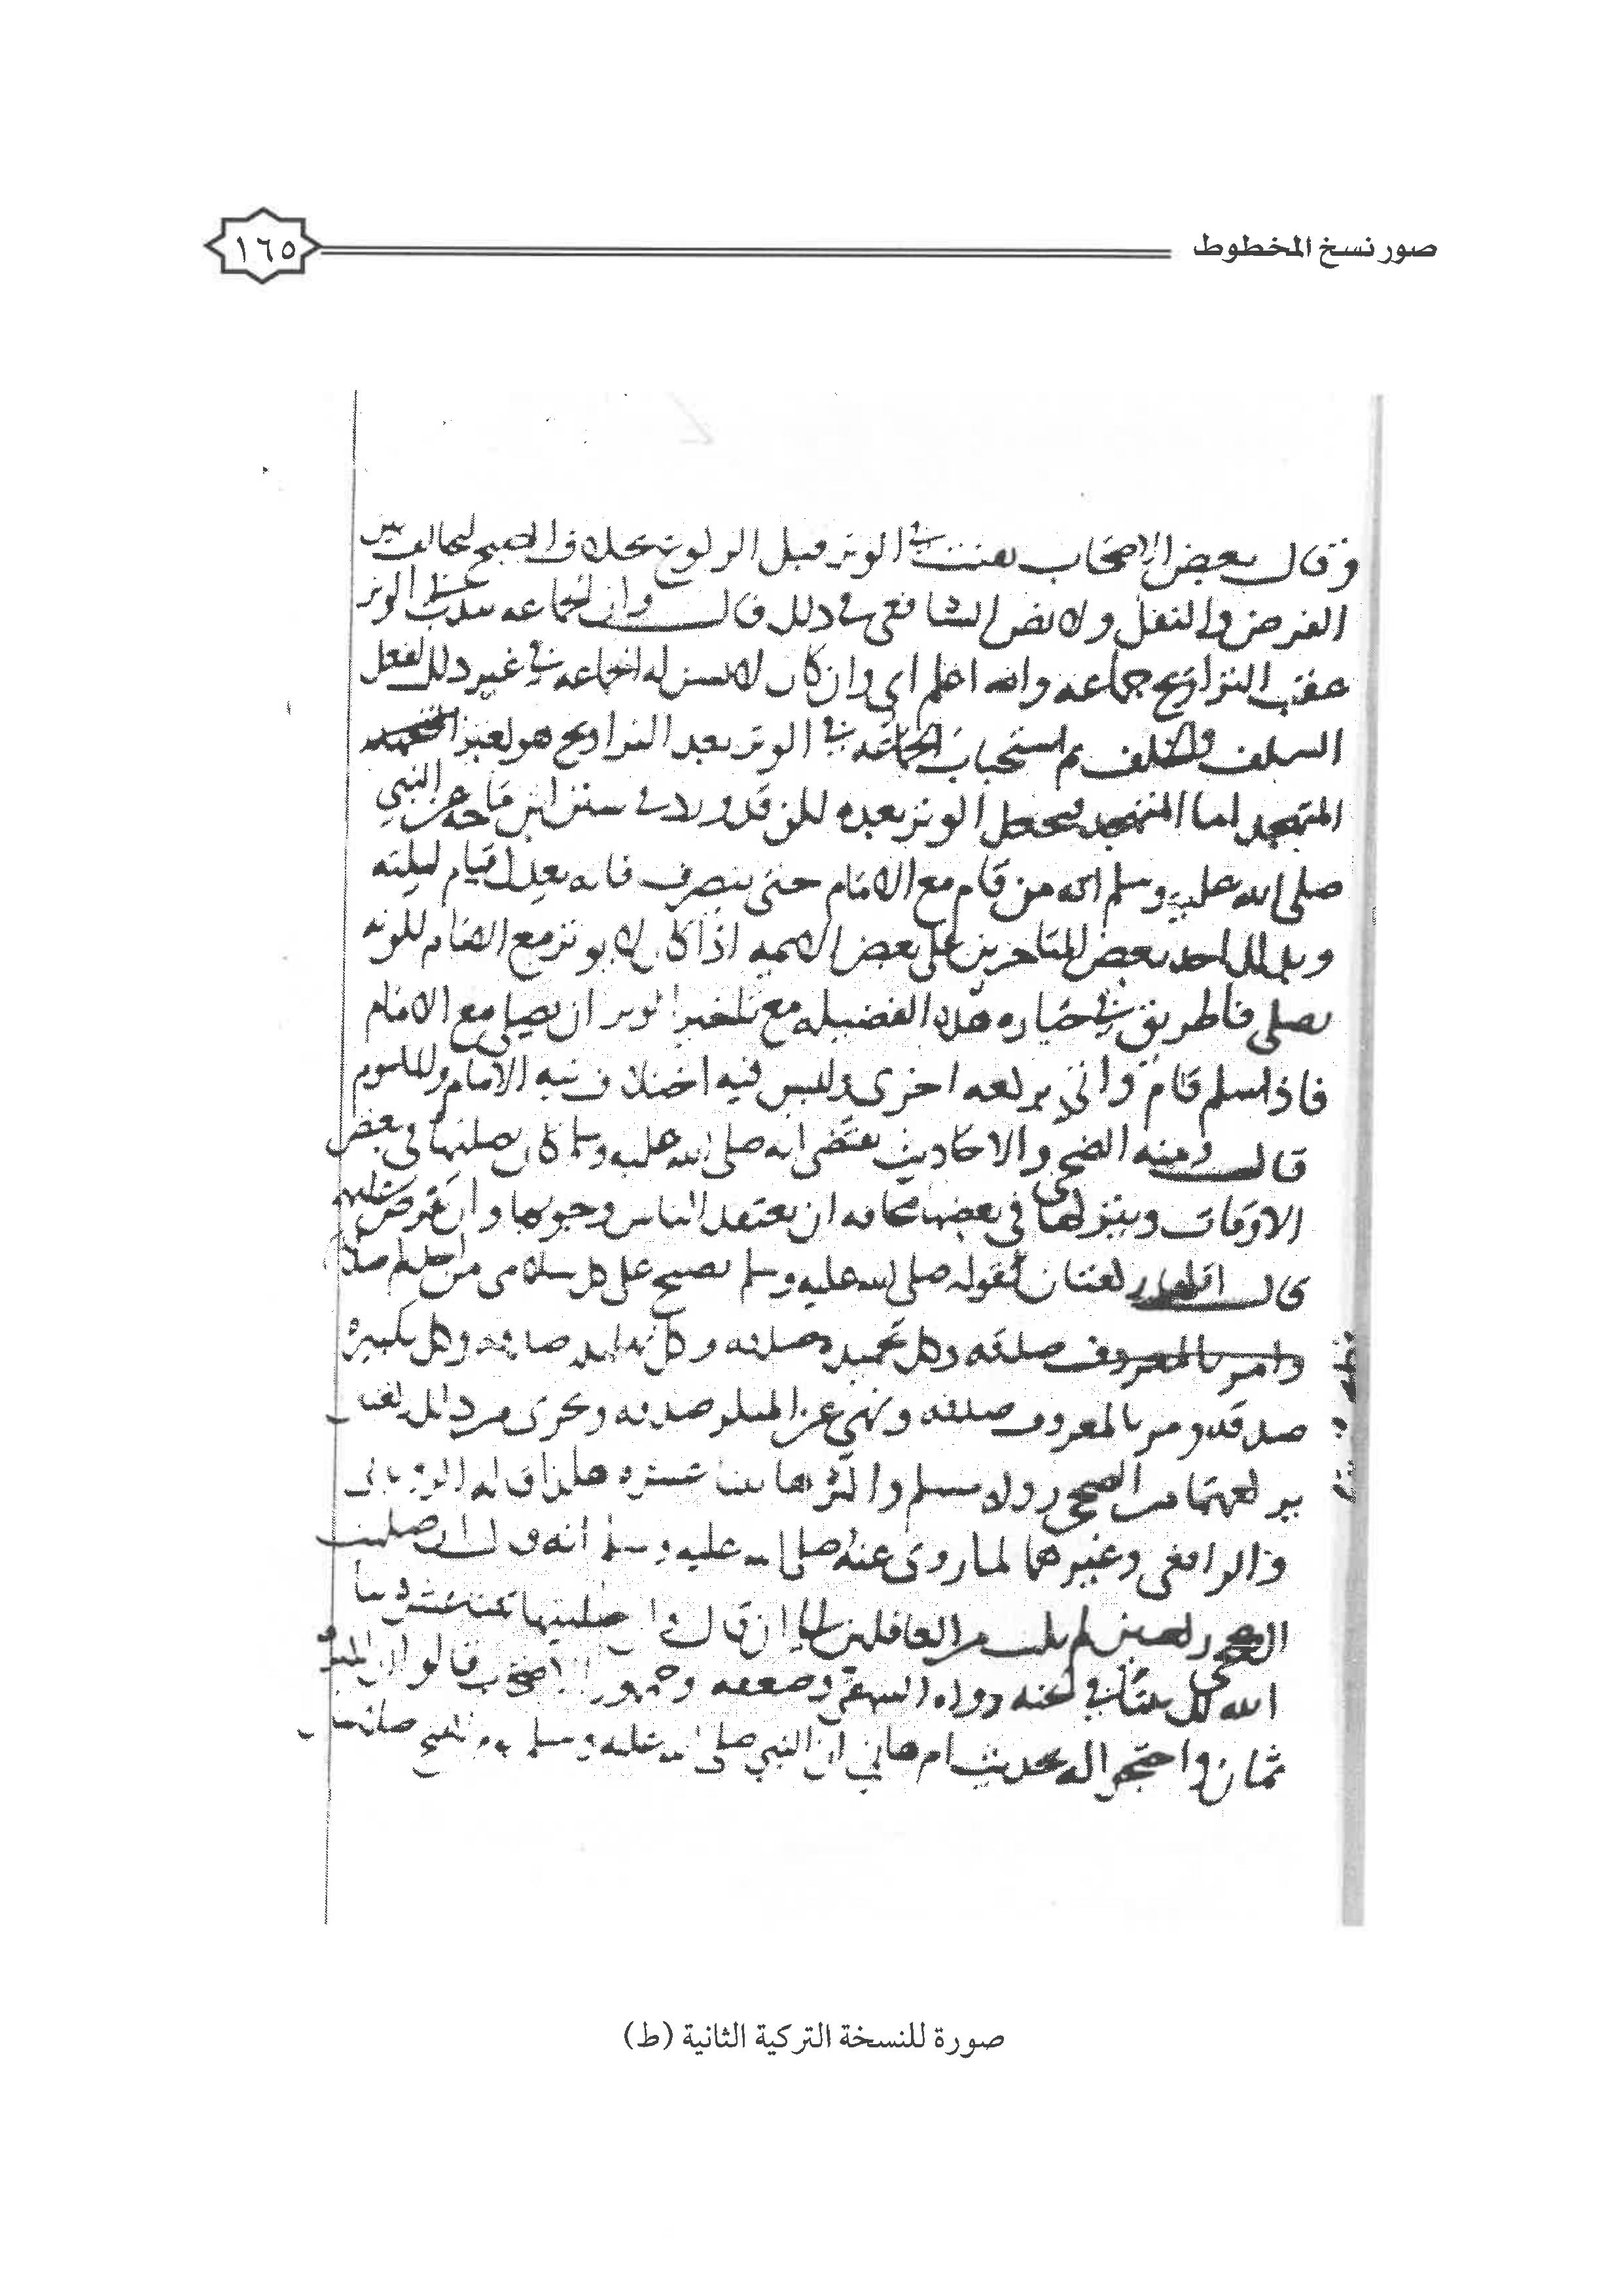 صور نسخ المخطوط
١٦٥
وقال بعض الاصحاب يقنت في الوتر قبل الركوع بخلاف الصبح ليخالف بين
الفرض والنفل ولا نص للشافعي في ذلك قال وان الجماعه تندب في الوتر
عقب التراويح جماعه والله اعلم اي وان كان لا تسن له الجماعه في غير ذلك لفعل
السلف والخلف ثم استحباب الجماعه في الوتر بعد التراويح هو لغير
المتهجد اما المتهجد فيجعل الوتر بعده لكن قد ورد في سنن ابن ماجه عن النبي
صلى الله عليه وسلم انه من قام مع الامام حتى ينصرف فانه يعدل قيام ليلته
وبذلك احد بعض المتاخرين على بعض الايمه اذا كان لا يوتر مع الامام لكونه
يصلي فالطريق في حيازه هذه الفضيله مع تاخير الوتر ان يصلي مع الامام
فاذا سلم قام واتي بركعه اخرى وليس فيه اختلاف نيه الامام والماموم
قال ومنه الضحى والاحاديث تقتضي انه صلى الله عليه وسلم كان يصليها في بعض
الاوقات ويتركها في بعضها مخافه ان يعتقد الناس وجوبها وان تفرض عليهم
قال اقلها ركعتان لقوله صلى الله عليه وسلم يصبح على كل سلامى من احدكم صدقه
وامر بالمعروف صدقه وكل تحميده صدقه وكل تهليله صدقه وكل تكبيره
صدقه وامر بالمعروف صدقه ونهي عن المنكر صدقه ويجزى من ذلك ركعتان
يركعهما من الضحى رواه مسلم واكثرها ثنتا عشره هكذا قاله الروياني
والرافعي وغيرهما لما روى عنه صلى الله عليه وسلم انه قال ان صليت
الضحى ركعتين لم تكتب من الغافلين الى ان قال وان صليتها ثنتي عشره بنا
الله لك بيتا في الجنه رواه البيهقي وضعفه وجمهور الاصحاب قالوا ان اكثر
ثمان واحتج له بحديث ام هاني ان النبي صلى الله عليه وسلم يوم الفتح صلى
صورة للنسخة التركية الثانية (ط)